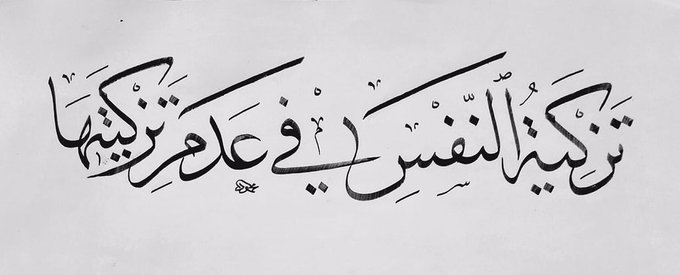 تَزْكِيَةُ النَّفْسِ فِي عَدَمِ تَزْكِيَتِهَا